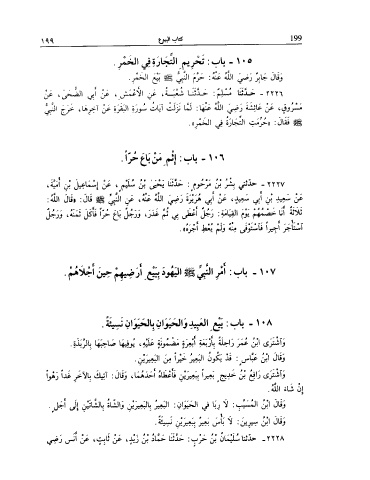 ١٩٩ كتاب البيوع 199
١٠٥ - باب: تَحْرِيمِ التِّجَارَةِ فِي الخَمْرِ.
وَقَالَ جَابِرٌ رَضِيَ اللَّهُ عَنْهُ: حَرَّمَ النَّبِيُّ ﷺ بَيْعَ الخَمْرِ.
٢٢٢٦ - حَدَّثَنَا مُسْلِمٌ: حَدَّثَنَا شُعْبَةُ، عَنِ الأَعْمَشِ، عَنْ أَبِي الضُّحَى، عَنْ
مَسْرُوقٍ، عَنْ عَائِشَةَ رَضِيَ اللَّهُ عَنْهَا: لَمَّا نَزَلَتْ آيَاتُ سُورَةِ البَقَرَةِ عَنْ آخِرِهَا، خَرَجَ النَّبِيُّ
ﷺ فَقَالَ: «حُرِّمَتِ التِّجَارَةُ فِي الخَمْرِ».
١٠٦ - باب: إِثْمِ مَنْ بَاعَ حُرّاً.
٢٢٢٧ - حدّثني بِشْرُ بْنُ مَرْحُومٍ: حَدَّثَنَا يَحْيَى بْنُ سُلَيْمٍ، عَنْ إِسْمَاعِيلَ بْنِ أُمَيَّةَ،
عَنْ سَعِيدِ بْنِ أَبِي سَعِيدٍ، عَنْ أَبِي هُرَيْرَةَ رَضِيَ اللَّهُ عَنْهُ، عَنِ النَّبِيِّ ﷺ قَالَ: «قَالَ اللَّهُ:
ثَلَاثَةٌ أَنَا خَصْمُهُمْ يَوْمَ القِيَامَةِ: رَجُلٌ أَعْطَى بِي ثُمَّ غَدَرَ، وَرَجُلٌ بَاعَ حُرّاً فَأَكَلَ ثَمَنَهُ، وَرَجُلٌ
اسْتَأْجَرَ أَجِيراً فَاسْتَوْفَى مِنْهُ وَلَمْ يُعْطِ أَجْرَهُ».
١٠٧ - باب: أَمْرِ النَّبِيِّ ﷺ اليَهُودَ بِبَيْعِ أَرَضِيهِمْ حِينَ أَجْلَاهُمْ.
١٠٨ - باب: بَيْعِ العَبِيدِ وَالحَيَوَانِ بِالحَيَوَانِ نَسِيئَةً.
وَاشْتَرَى ابْنُ عُمَرَ رَاحِلَةً بِأَرْبَعَةِ أَبْعِرَةٍ مَضْمُونَةٍ عَلَيْهِ، يُوفِيهَا صَاحِبَهَا بِالرَّبَذَةِ.
وَقَالَ ابْنُ عَبَّاسٍ: قَدْ يَكُونُ البَعِيرُ خَيْراً مِنَ البَعِيرَيْنِ.
وَاشْتَرَى رَافِعُ بْنُ خَدِيجٍ بَعِيراً بِبَعِيرَيْنِ فَأَعْطَاهُ أَحَدَهُمَا، وَقَالَ: آتِيكَ بِالآخَرِ غَداً رَهْواً
إِنْ شَاءَ اللَّهُ.
وَقَالَ ابْنُ المُسَيَّبِ: لَا رِبَا فِي الحَيَوَانِ: البَعِيرُ بِالبَعِيرَيْنِ وَالشَّاةُ بِالشَّاتَيْنِ إِلَى أَجَلٍ.
وَقَالَ ابْنُ سِيرِينَ: لَا بَأْسَ بَعِيرٌ بِبَعِيرَيْنِ نَسِيئَةً.
٢٢٢٨ - حدّثنا سُلَيْمَانُ بْنُ حَرْبٍ: حَدَّثَنَا حَمَّادُ بْنُ زَيْدٍ، عَنْ ثَابِتٍ، عَنْ أَنَسٍ رَضِيَ